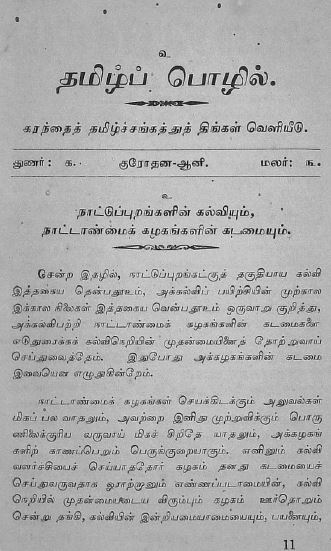 உ
தமிழ்ப் பொழில்.
கரந்தைத் தமிழ்ச்சங்கத்துத் திங்கள் வெளியீடு.
துணர்: க. குரோதன-ஆனி. மலர்: ௩.
உ
நாட்டுப்புறங்களின் கல்வியும்,
நாட்டாண்மைக் கழகங்களின் கடமையும்.
சென்ற இதழில், நாட்டுப்புறங்கட்குத் தகுதியாய கல்வி
இத்தகைய தென்பதூஉம், அக்கல்விப் பயிற்சியின் முற்கால
இக்கால நிலைகள் இத்தகைய வென்பதூஉம் ஒருவாறு குறித்து,
அக்கல்விபற்றி நாட்டாண்மைக் கழகங்களின் கடமைகளை
எடுதுரைக்கக் கல்விநெறியின் முதன்மையினைத் தோற்றுவாய்
செய்துவைத்தேம். இதுபோது அக்கழகங்களின் கடமை
இவையென எழுதுகின்றேம்.
நாட்டாண்மைக் கழகங்கள் செயக்கிடக்கும் அலுவல்கள்
மிகப் பல வாதலும், அவற்றை இனிது முற்றுவிக்கும் பொரு
ணிலைக்குரிய வருவாய் மிகச் சிறிதே யாதலும், அக்கழகங்
களிற் காணப்பெறும் பெருங்குறையாகும். எனினும் கல்வி
வளர்ச்சியைச் செய்யாததோர் கழகம் தனது கடமையைச்
செய்துவருவதாக ஓராற்றானும் எண்ணப்படாமையின், கல்வி
நெறியில் முதன்மையடைய விரும்பும் கழகம் ஊர்தொறும்
சென்று தங்கி, கல்வியின் இன்றியமையாமையையும், பயனையும்,
11